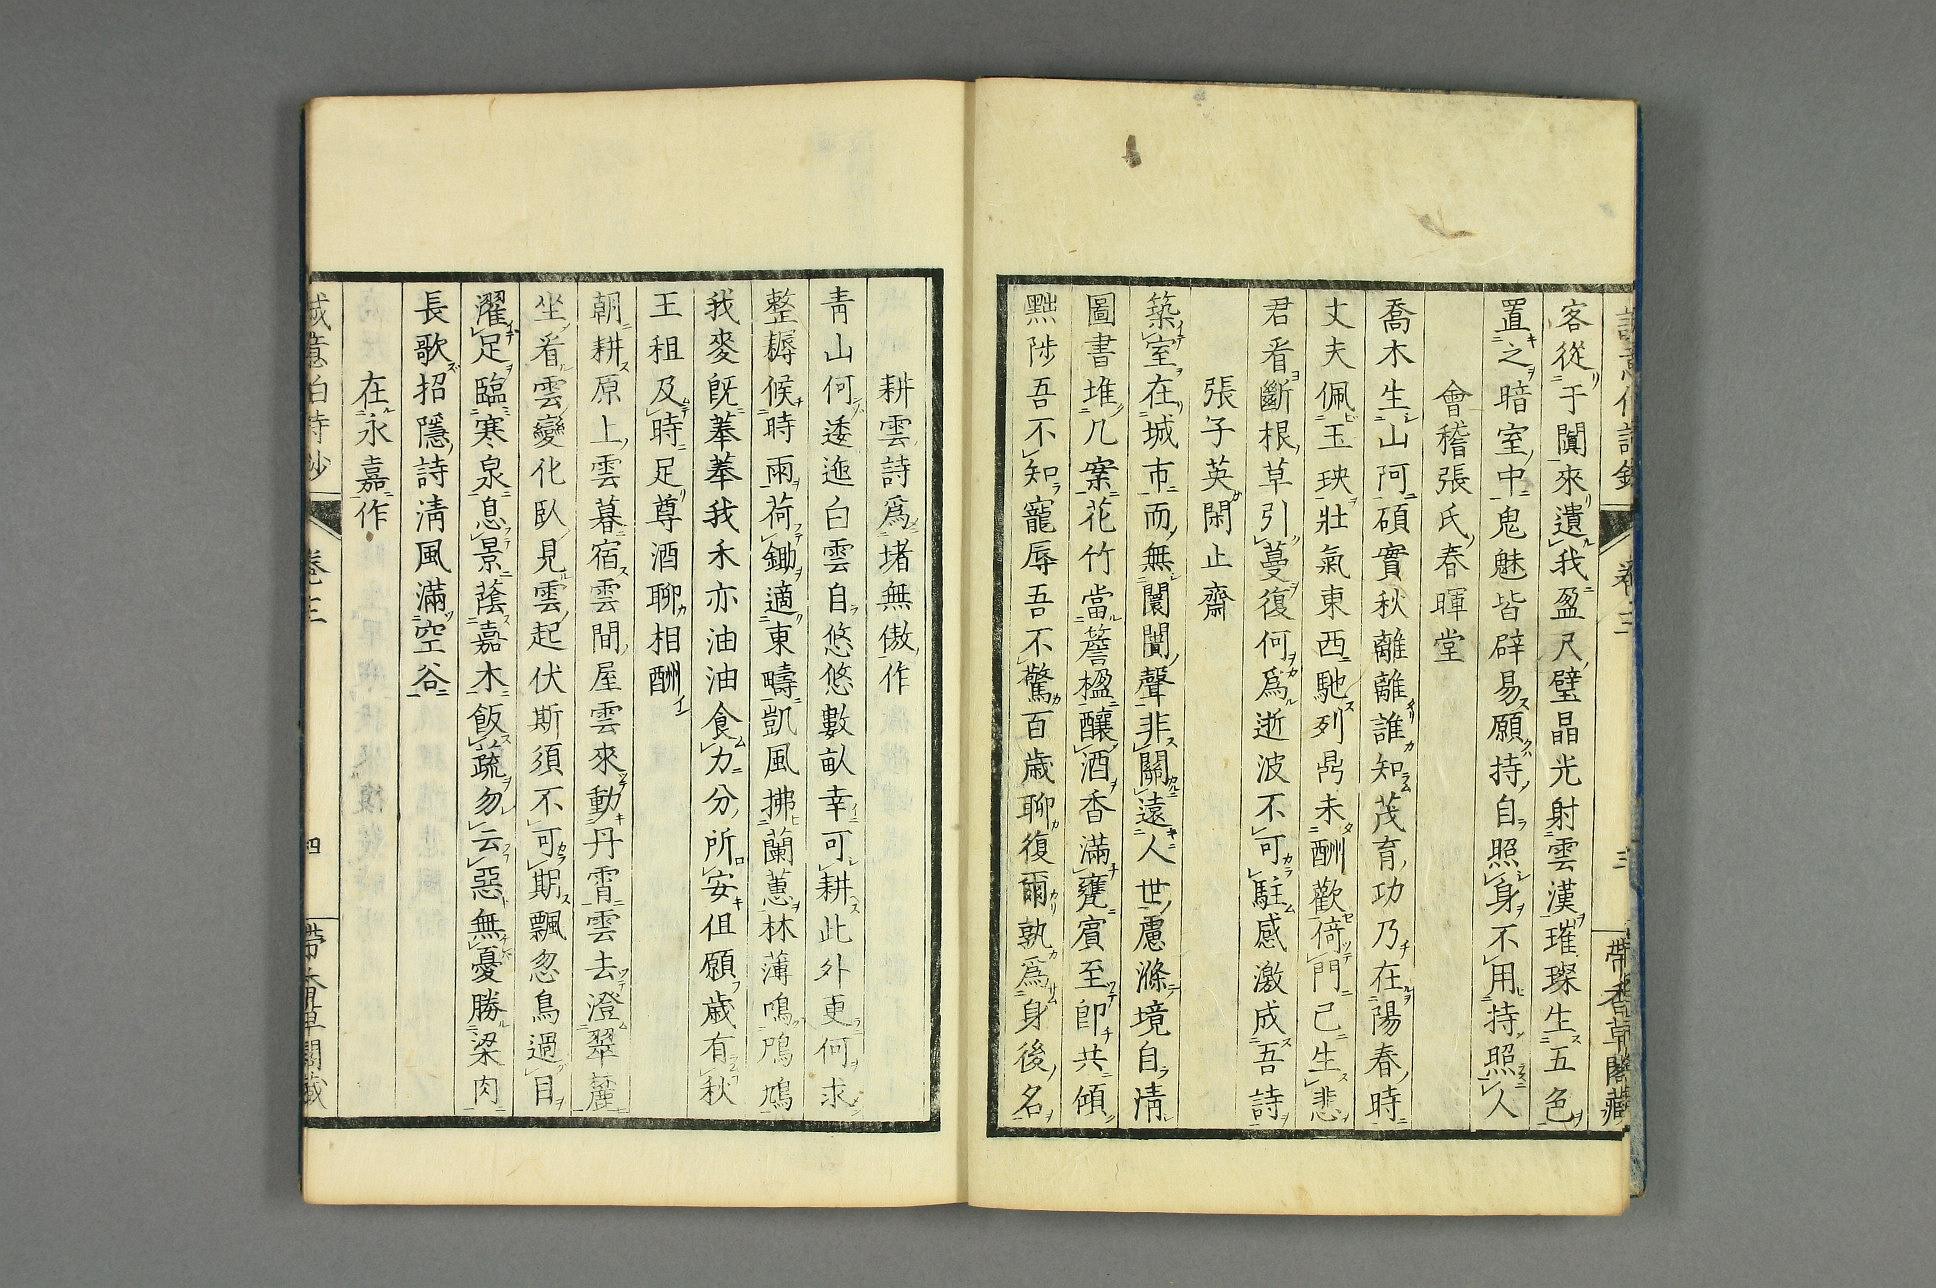 客從于闐來遺我盈尺璧晶光射雲漢璀璨生五色
置之暗室中鬼魅皆辟易願持自照身不用持照人
會稽張氏春暉堂
喬木生山阿碩實秋離離誰知茂育功乃在陽春時
丈夫佩玉玦壯氣東西馳列鼎未酬歡倚門已生悲
君看斷根草引蔓復何爲逝波不可駐感激成吾詩
張子英閑止齋
築室在城市而無闤闠聲非關遠人世慮滌境自淸
圖書堆几案花竹當簷楹釀酒香滿甕賓至卽共傾
黜陟吾不知寵辱吾不驚百歲聊復爾孰爲身後名
卷二
三
帶香草閣藏
耕雲詩爲堵無傲作
靑山何逶迤白雲自悠悠數畝幸可耕此外更何求
整耨候時雨荷鋤適東疇凱風拂蘭蕙林薄鳴鳲鳩
我麥旣葊葊我禾亦油油食力分所安但願歲有秋
王租及時足尊酒聊相酬
朝耕原上雲暮宿雲間屋雲來動丹霄雲去澄翠麓
坐看雲變化臥見雲起伏斯須不可㫷飄忽鳥過目
濯足臨寒泉息景蔭嘉木飯蔬勿云惡無憂勝粱肉
長歌招隱詩淸風滿空谷
在永嘉作
誠意伯詩鈔
四